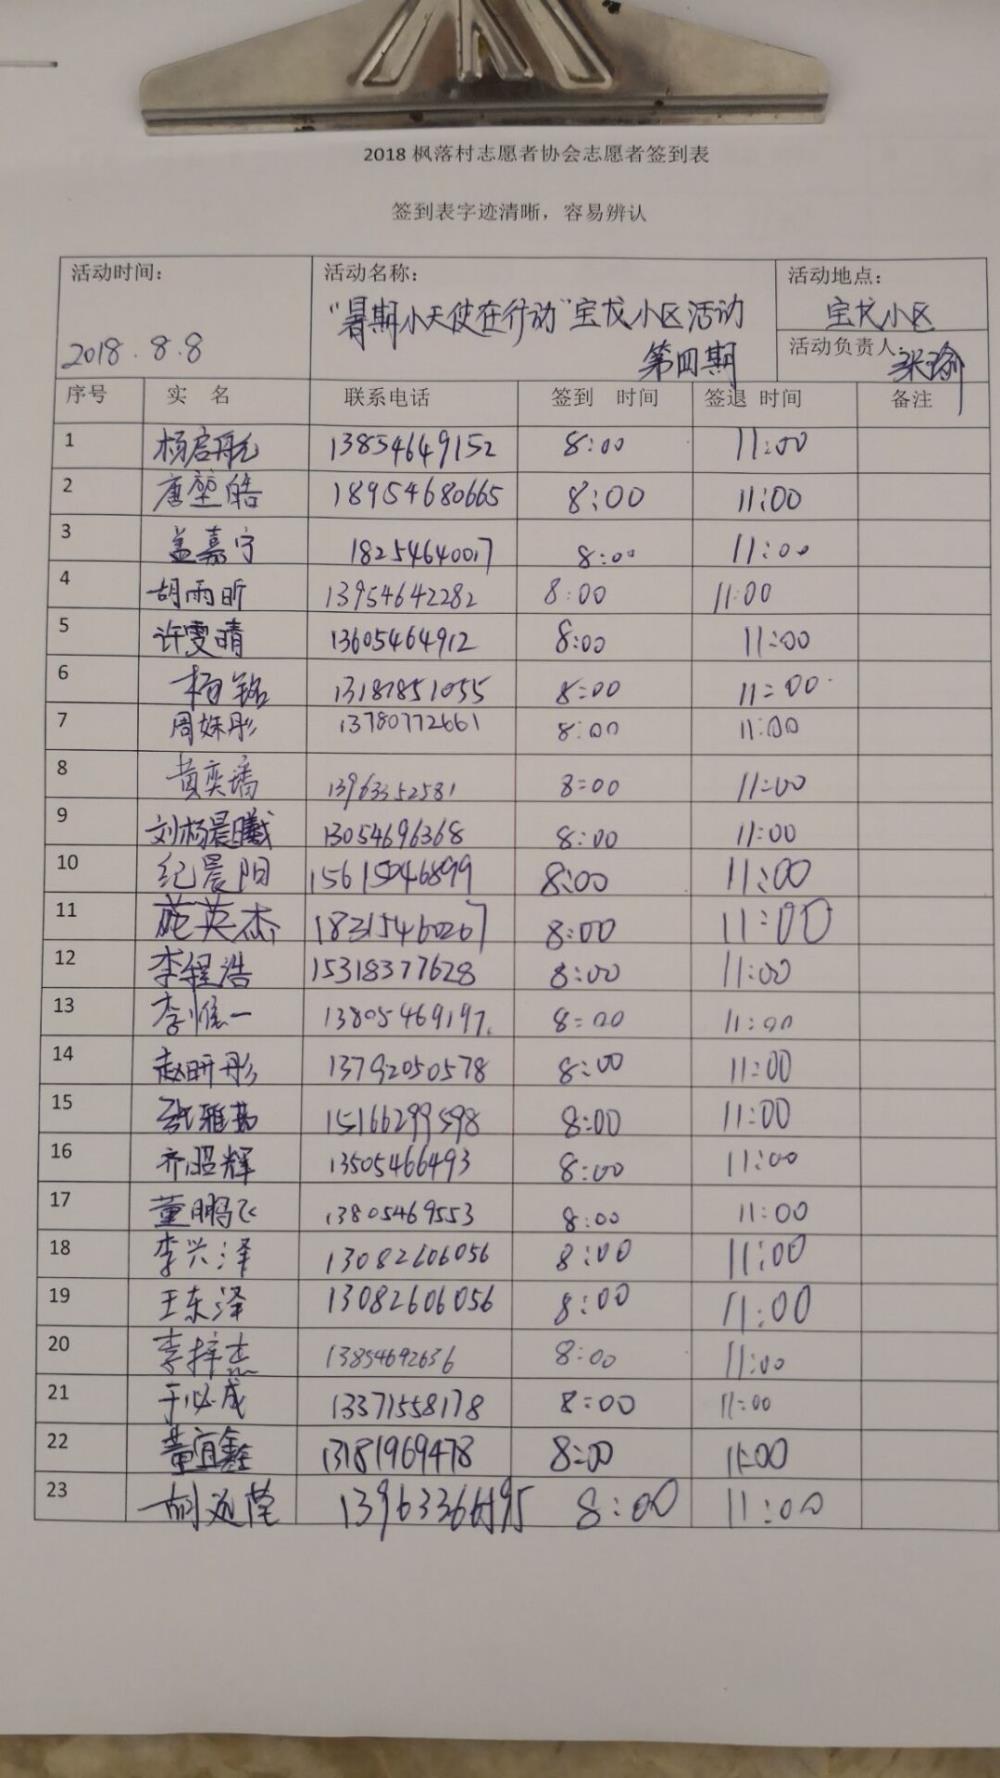 2018 枫落村志愿者协会志愿者签到表
签到表字迹清晰，容易辨认
活动时间： 活动名称： 活动地点：
2018.8.8 “暑期小天使在行动”宝龙小区活动 宝龙小区
第四期 活动负责人： 张瑜
序号 实 名 联系电话 签到 时间 签退 时间 备注
1 杨启航 13854649152 8:00 11:00
2 唐堃皓 18954680665 8:00 11:00
3 盖嘉宁 18254640017 8:00 11:00
4 胡雨昕 13954642282 8:00 11:00
5 许雯晴 13605464912 8:00 11:00
6 杨铭 13187851055 8:00 11:00
7 周姝彤 13780772661 8:00 11:00
8 黄奕璠 13963352581 8:00 11:00
9 刘杨晨曦 13054696368 8:00 11:00
10 纪晨阳 15615046899 8:00 11:00
11 庞英杰 18315460267 8:00 11:00
12 李程浩 15318377628 8:00 11:00
13 李惟一 13805469197. 8:00 11:00
14 赵昕彤 13792050578 8:00 11:00
15 张雅茹 15166299598 8:00 11:00
16 齐昭辉 13505466493 8:00 11:00
17 董鹏飞 13805469553 8:00 11:00
18 李兴泽 13082606056 8:00 11:00
19 王东泽 13082606056 8:00 11:00
20 李梓杰 13854692636 8:00 11:00
21 于必成 13371558178 8:00 11:00
22 董宜鑫 13181969478 8:00 11:00
23 胡远莹 8:00 11:00